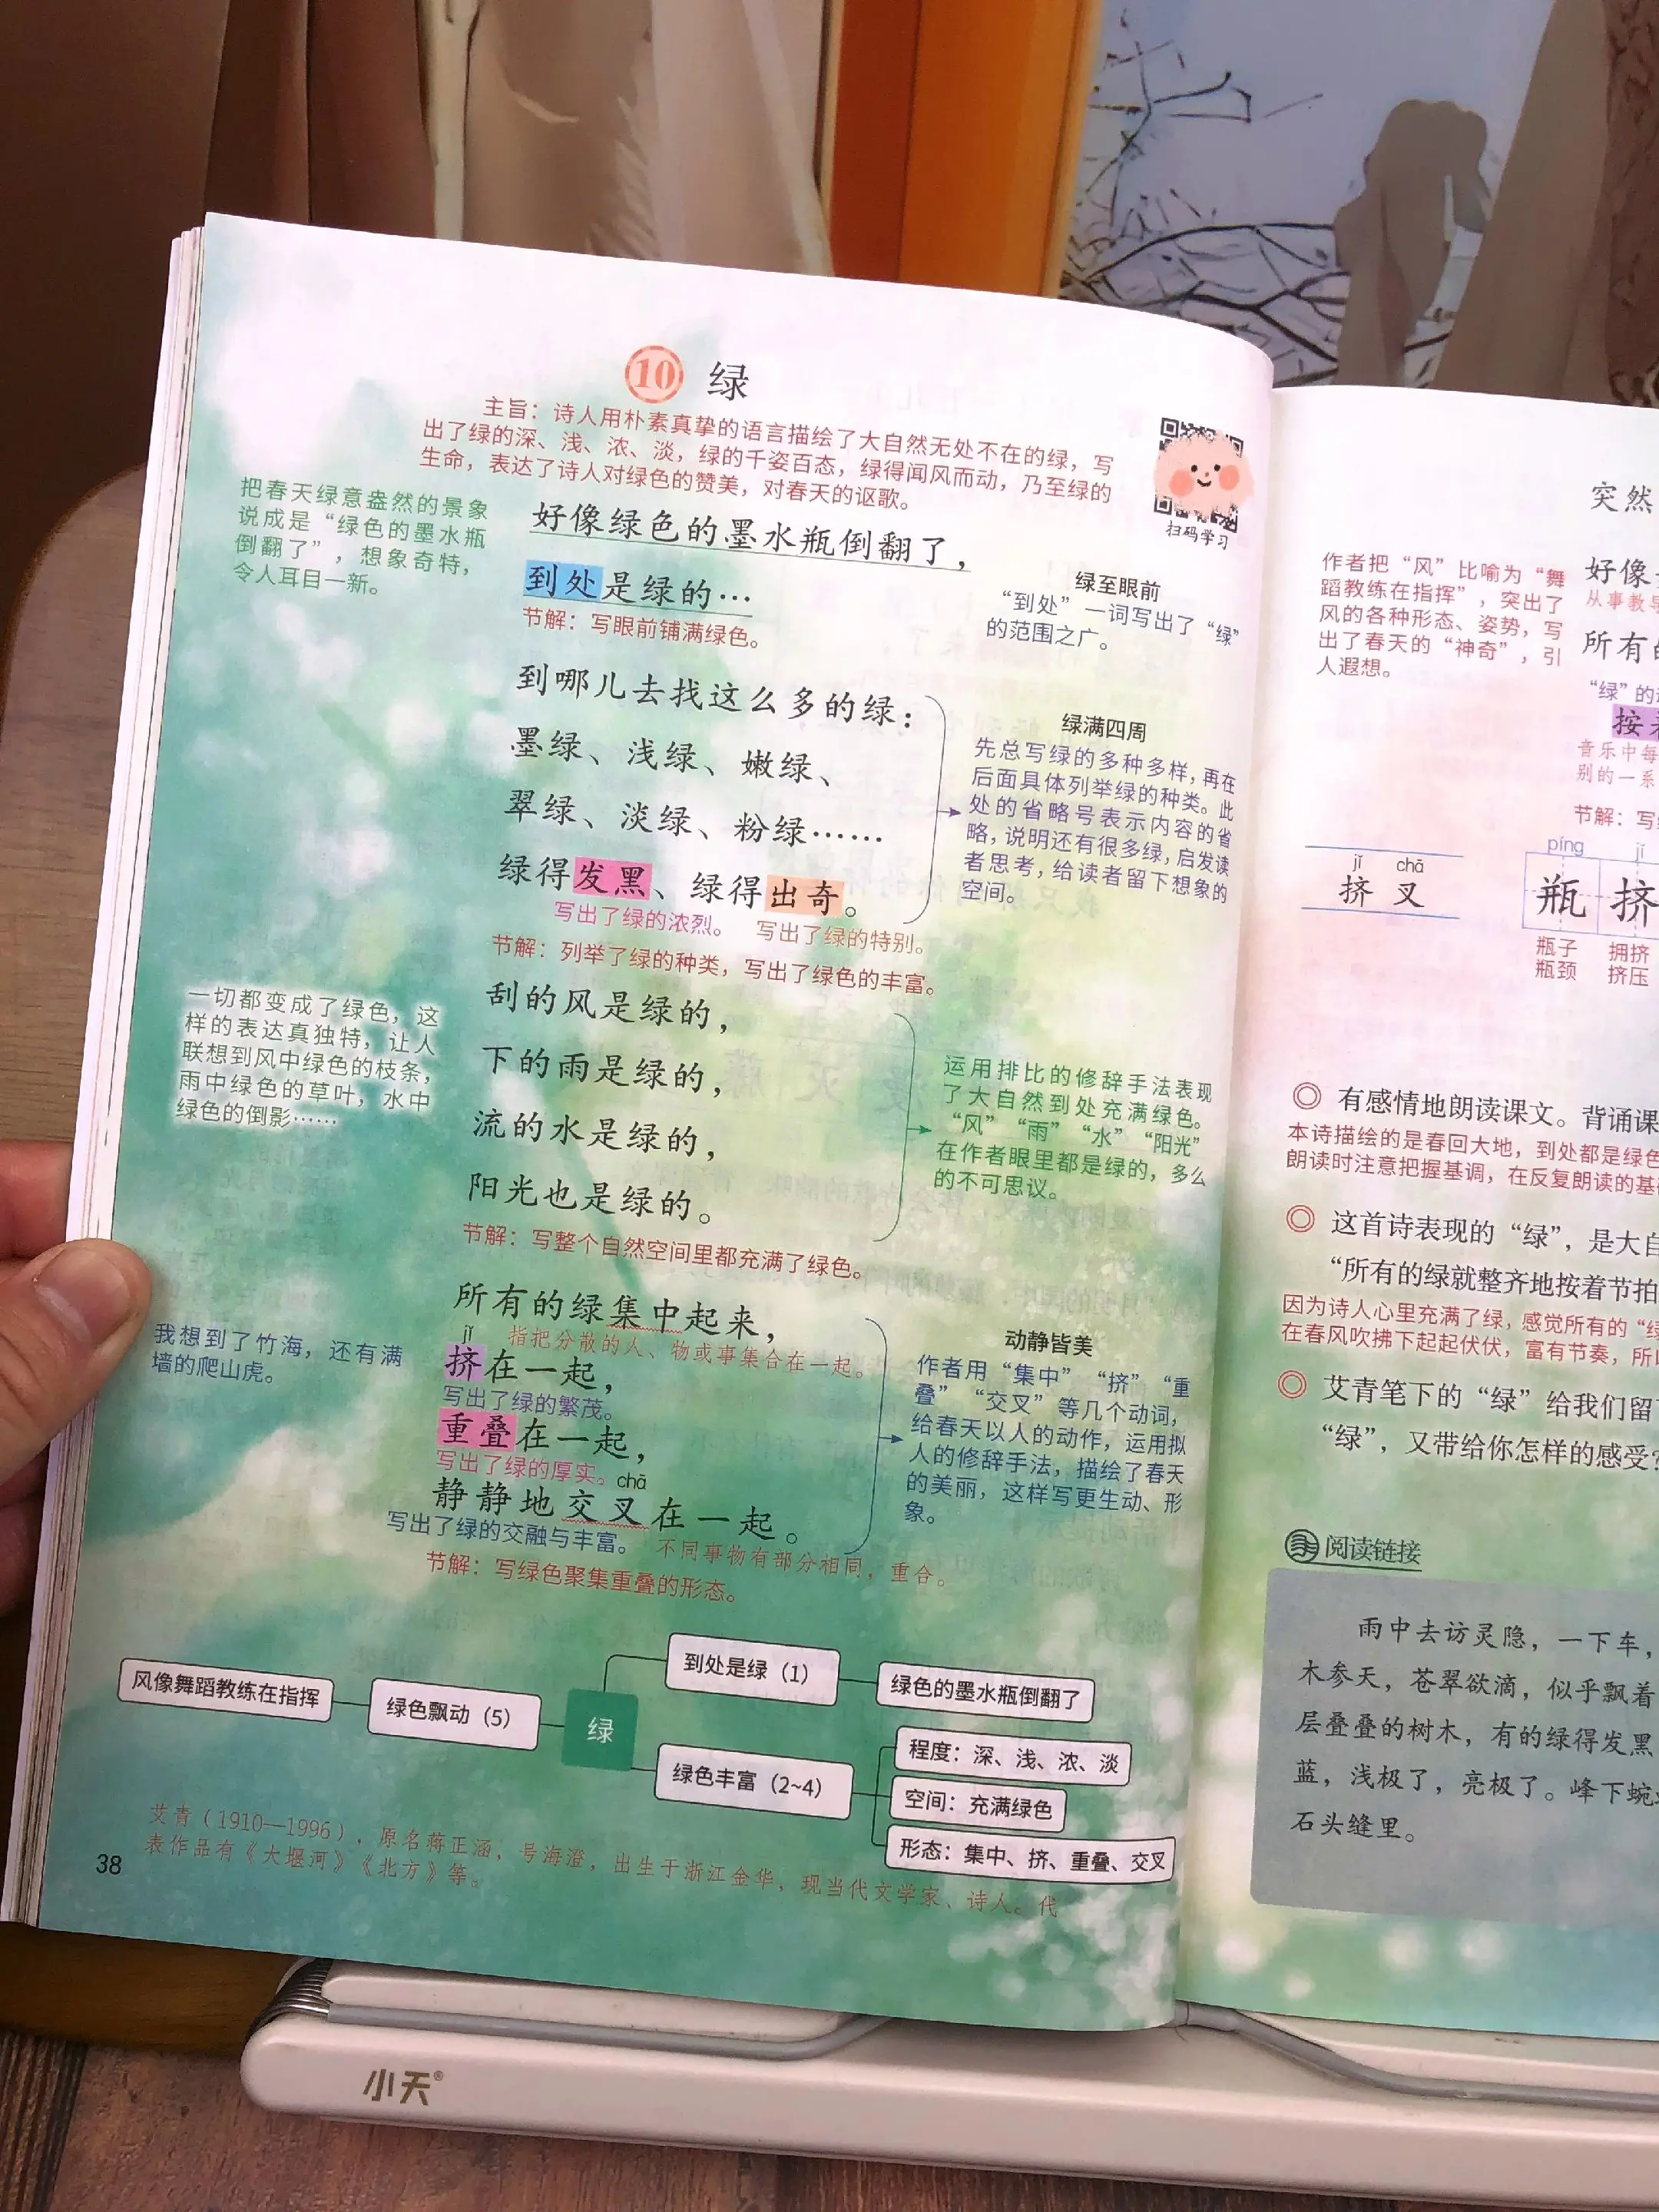 10 绿
主旨：诗人用朴素真挚的语言描绘了大自然无处不在的绿，写
出了绿的深、浅、浓、淡，绿的千姿百态，绿得闻风而动，乃至绿的
生命，表达了诗人对绿色的赞美，对春天的讴歌。
扫码学习
把春天绿意盎然的景象
说成是“绿色的墨水瓶
倒翻了”，想象奇特，
令人耳目一新。
好像绿色的墨水瓶倒翻了，
到处是绿的…
节解：写眼前铺满绿色。
绿至眼前
“到处”一词写出了“绿”
的范围之广。
到哪儿去找这么多的绿：
墨绿、浅绿、嫩绿、
翠绿、淡绿、粉绿……
绿得发黑、绿得出奇。
写出了绿的浓烈。 写出了绿的特别。
节解：列举了绿的种类，写出了绿色的丰富。
绿满四周
先总写绿的多种多样，再在
后面具体列举绿的种类。此
处的省略号表示内容的省
略，说明还有很多绿，启发读
者思考，给读者留下想象的
空间。
一切都变成了绿色，这
样的表达真独特，让人
联想到风中绿色的枝条，
雨中绿色的草叶，水中
绿色的倒影……
刮的风是绿的，
下的雨是绿的，
流的水是绿的，
阳光也是绿的。
节解：写整个自然空间里都充满了绿色。
运用排比的修辞手法表现
了大自然到处充满绿色。
“风”“雨”“水”“阳光”
在作者眼里都是绿的，多么
的不可思议。
我想到了竹海，还有满
墙的爬山虎。
所有的绿集中起来，
指把分散的人、物或事集合在一起。
jǐ
挤在一起，
写出了绿的繁茂。
重叠在一起，
写出了绿的厚实。
chā
静静地交叉在一起。
写出了绿的交融与丰富。 不同事物有部分相同，重合。
节解：写绿色聚集重叠的形态。
动静皆美
作者用“集中”“挤”“重
叠”“交叉”等几个动词，
给春天以人的动作，运用拟
人的修辞手法，描绘了春天
的美丽，这样写更生动、形
象。
风像舞蹈教练在指挥
绿色飘动（5）
绿
到处是绿（1）
绿色的墨水瓶倒翻了
绿色丰富（2~4）
程度：深、浅、浓、淡
空间：充满绿色
形态：集中、挤、重叠、交叉
艾青（1910—1996），原名蒋正涵，号海澄，出生于浙江金华，现当代文学家、诗人。代
表作品有《大堰河》《北方》等。
38
突然
作者把“风”比喻为“舞
蹈教练在指挥”，突出了
风的各种形态、姿势，写
出了春天的“神奇”，引
人遐想。
好像
从事教
所有
“绿”的
按
音乐中每
别的一系
节解：写
jǐ chā
挤 叉
píng jǐ
瓶 挤
瓶子 拥挤
瓶颈 挤压
◎ 有感情地朗读课文。背诵课
本诗描绘的是春回大地，到处都是绿色
朗读时注意把握基调，在反复朗读的基
◎ 这首诗表现的“绿”，是大自
“所有的绿就整齐地按着节拍
因为诗人心里充满了绿，感觉所有的“绿
在春风吹拂下起起伏伏，富有节奏，所
◎ 艾青笔下的“绿”给我们留
“绿”，又带给你怎样的感受
阅读链接
雨中去访灵隐，一下车，
木参天，苍翠欲滴，似乎飘着
层叠叠的树木，有的绿得发黑
蓝，浅极了，亮极了。峰下蜿
石头缝里。
小天®